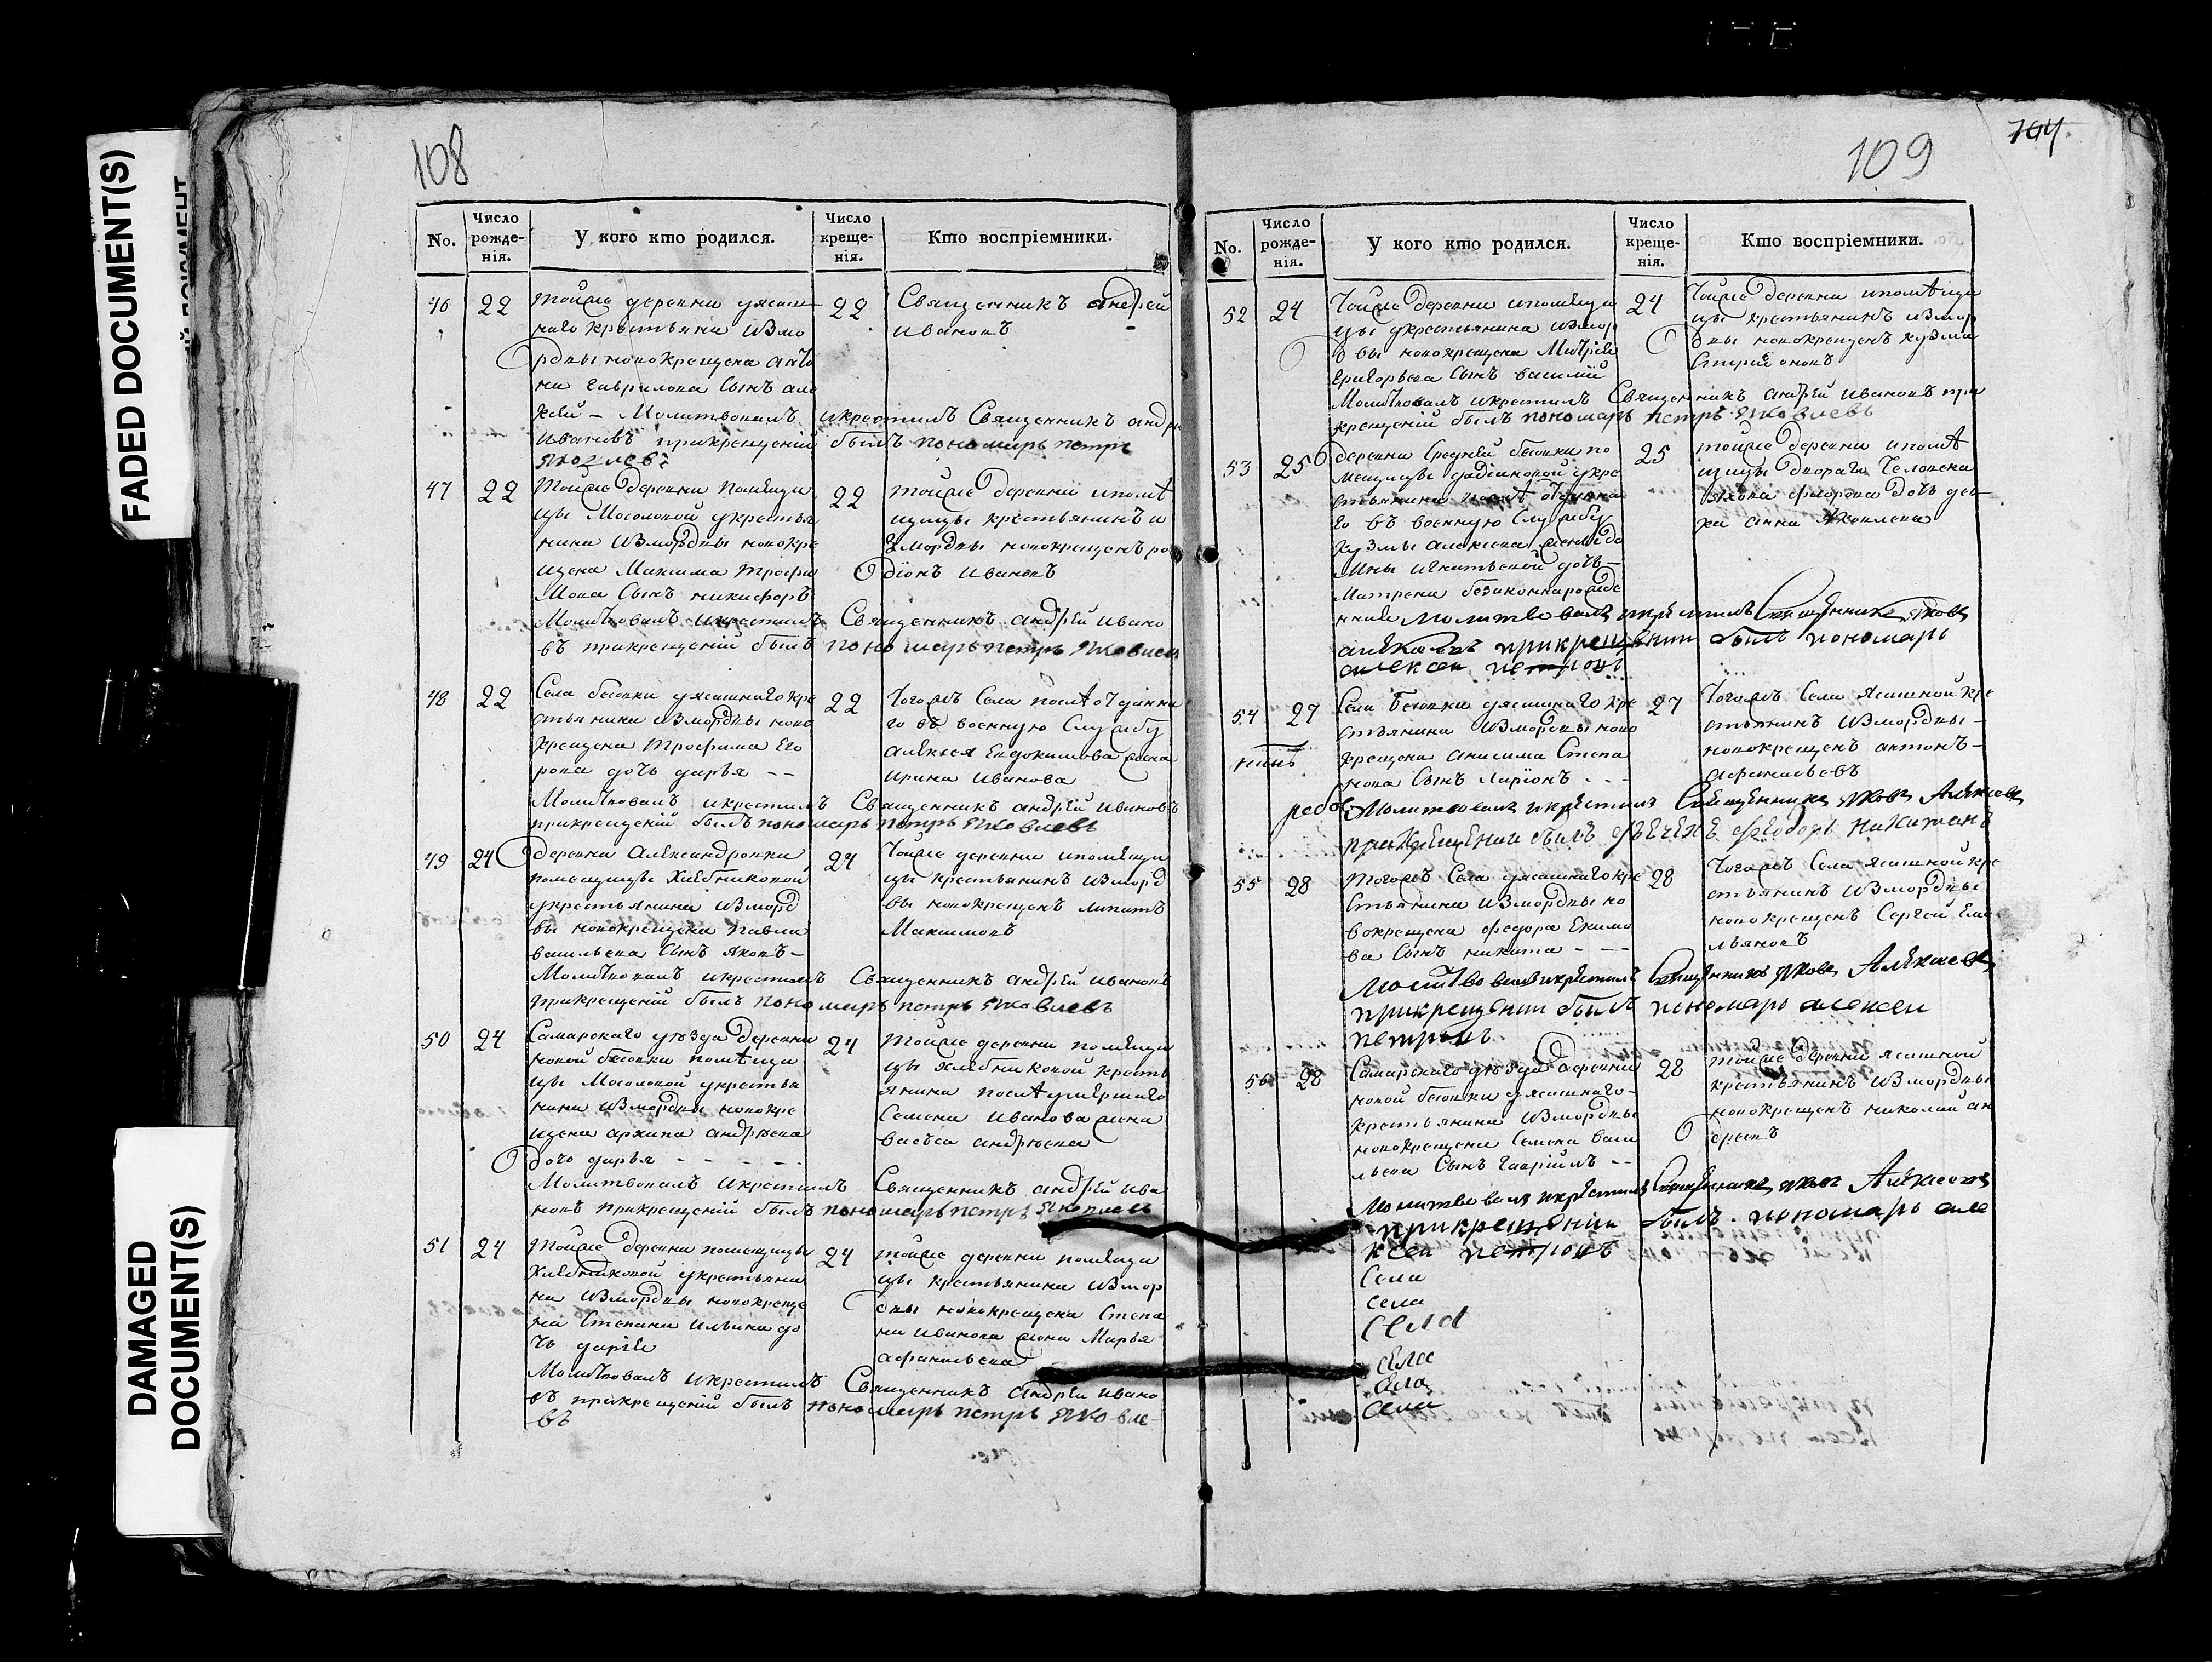 FADED DOCUMENT(S)
DAMAGED
DOCUMENT(S)
108
No.
Число рожденія.
У кого кто родился.
Число крещенія.
Кто воспріемники.
46 22
тойже деревни уясаш
наго крестьянина измо
рдвы новокрещена анто
на гаврилова сынъ але
ксей - Молитвовалъ икрестилъ Священникъ андрей
ивановъ прикрещеніи былъ пономарь петръ
яковлевъ
22
Священникъ андрей
ивановъ
47 22
тойже деревни помещи
цы Мосоловой укрестья
нина измордвы новокре
щена Максима трофи
мова сынъ никифоръ
Молитвовалъ икрестилъ Священникъ андрей ивано
въ прикрещеніи былъ пономарь петръ яковлевъ
22
тойже деревни ипомѣ
щицы крестьянинъ и
змордвы новокрещенъ ро
діонъ ивановъ
48 22
Села безовки уясашнаго кре
стьянина измордвы ново
крещена трофима Его
рова дочь дарья --
Молитвовалъ икрестилъ Священникъ андрей ивановъ
прикрещеніи былъ пономарь петръ яковлевъ
22
тогожъ Села послѣ отданна
го въ военную Службу
алексея Евдокимова жена
ирина иванова
49 24
деревни Александровки
помещицы Хлебниковой
укрестьянина изморд
вы новокрещена павла
васильева сынъ яковъ -
Молитвовалъ икрестилъ Священникъ андрей ивановъ
прикрещеніи былъ пономарь петръ яковлевъ
24
тойже деревни ипомещи
цы крестьянинъ изморд
вы новокрещенъ липатъ
Максимовъ
50 24
Самарскаго уѣзда деревни
новой безовки помѣщи
цы Мосоловой укрестья
нина измордвы новокре
щена архипа андрѣева
дочь дарья - - - -
Молитвовалъ икрестилъ Священникъ андрей ива
новъ прикрещеніи былъ пономарь петръ яковлевъ
24
тойже деревни помещи
цы хлебниковой кресть
янина послѣ умершаго
Семена иванова жена
андрѣева
51 24
тойже деревни помещицы
Хлебниковой укрестьяни
на измордвы новокреще
на Степана ильина до
чь
Молитвовалъ икрестилъ Священникъ андрей ивано
въ прикрещеніи былъ пономарь петръ яковле-
въ
24
тойже деревни помещи
цы крестьянина измор
двы новокрещена Степа
на иванова жена Марья
афанасьева
109
No.
Число рожденія.
У кого кто родился.
Число крещенія.
Кто воспріемники.
52 24
тойже деревни ипомещи
цы укрестьянина измор
двы новокрещена Митрія
григорьева сынъ василій
Молитвовалъ икрестилъ Священникъ андрей ивановъ при
крещеніи былъ пономарь петръ яковлевъ
24
тойже деревни ипомѣщи
цы крестьянинъ измор
двы новокрещенъ кузма
53 25
деревни Средней безовки по
мещицы укре
стьянина послѣ отданна
го въ военную Службу
кузмы алексеева жены до
мны игнатьевой дочь -
Матрена безаконнорожде
нная молитвовалъ икрестилъ Священникъ яковъ
алексеевъ прикрещении былъ пономарь
алексеи петровъ
25
тойже деревни ипомѣ
щицы двораго человека
дочь де-
вка анна яковлева
54 27
Села безовки уясашнаго кре
стьянина измордвы ново
крещена анисима Степа
нова сынъ Ларіонъ - - -
молитвовалъ икрестилъ Священникъ яковъ Алексеевъ
прикрещении былъ
27
тогожъ Села ясашной кре
стьянинъ измордвы -
новокрещенъ антонъ -
афанасьевъ
55 28
тогожъ Села уясашнаго кре
стьянина измордвы но
вокрещена федора Екимо
ва сынъ никита - - -
Молитвовалъ икрестилъ Священникъ яковъ Алексеевъ
прикрещении былъ пономарь алексеи
петровъ
28
тогожъ Села ясашной кре
стьянинъ измордвы
новокрещенъ Сергей Еме
льяновъ
56 28
Самарскаго уѣзда деревни
новой безовки уясашнаго -
крестьянина измордвы
новокрещена Семена васи
льева сынъ гаврилъ --
Молитвовалъ икрестилъ Священникъ яковъ Алексеевъ
прикрещении былъ пономарь але
ксеи петровъ
28
тойже деревни ясашной
крестьянинъ измордвы
новокрещенъ николай ан
дреевъ
Села
села
села
села
села
села